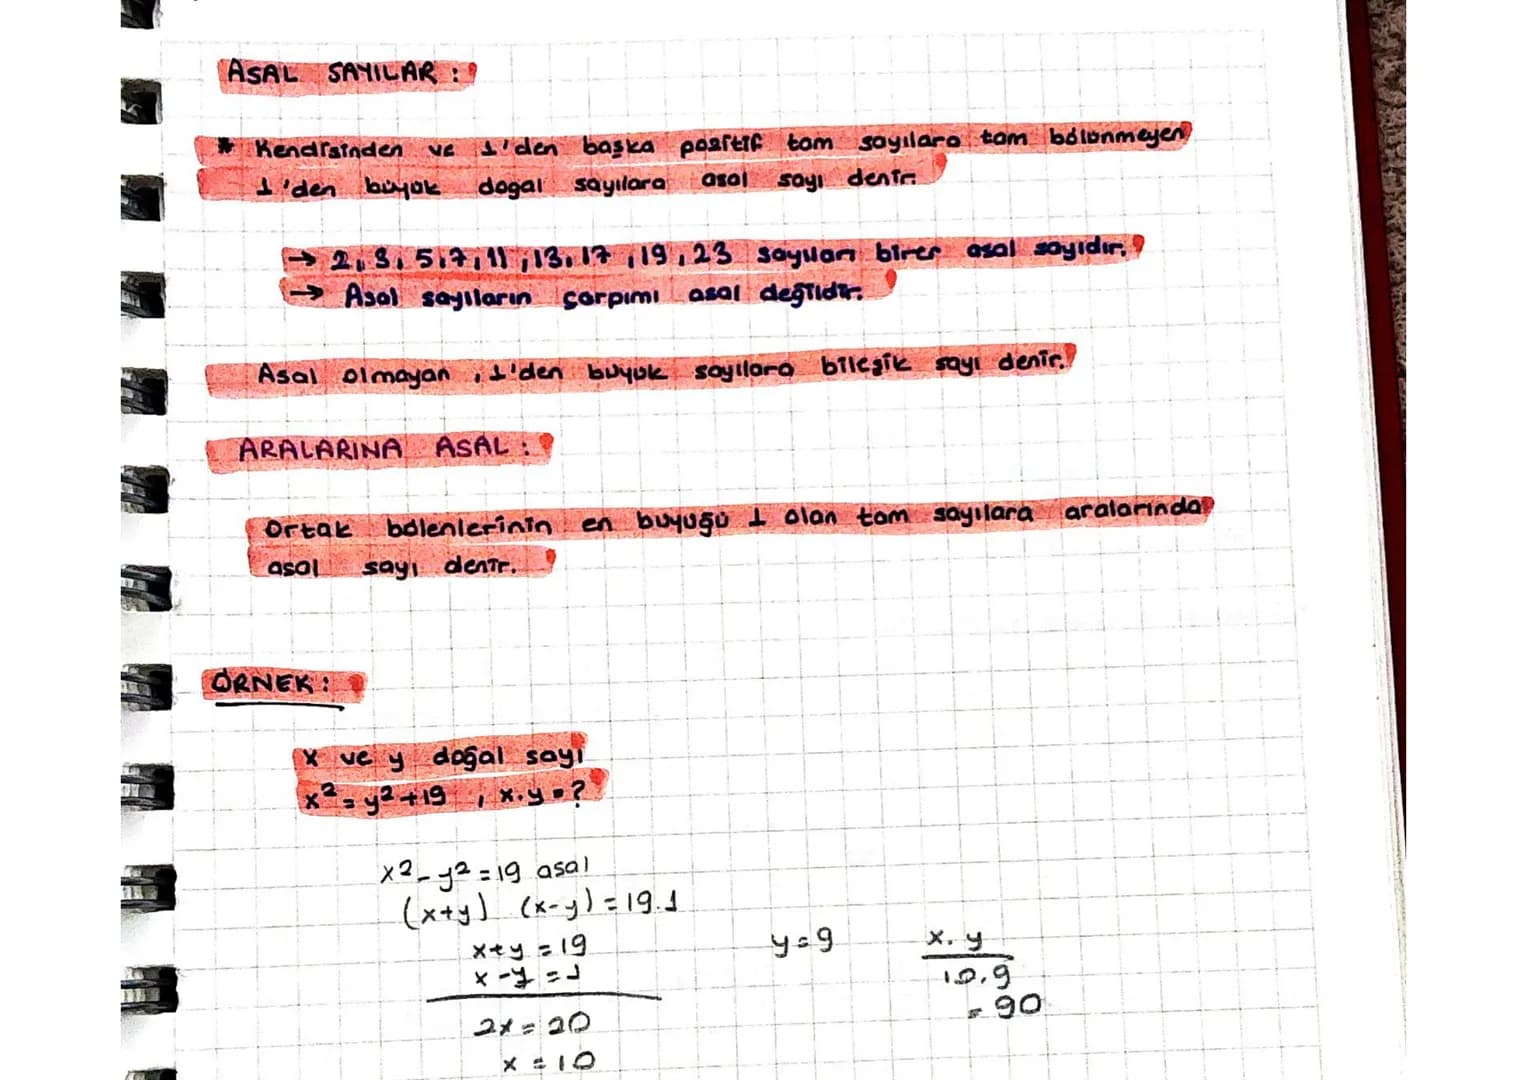 ASAL SAYILAR :
* Kendisinden ve 1'den başka pozitif tam sayılara tam bölünmeyen
1'den büyük doğal sayılara asal sayı denir.
→ 2, 3, 5, 7, 11, 13, 17, 19, 23 sayıları birer asal sayıdır.
→ Asal sayıların çarpımı asal değildir.
Asal olmayan, 1'den büyük sayılara bileşik sayı denir.
ARALARINA ASAL :
Ortak bölenlerinin en büyüğü 1 olan tam sayılara aralarında
asal sayı denir.
ÖRNEK :
x ve y doğal sayı
x² = y² + 19 , x.y = ?
x² - y² = 19 asal
(x+y) (x-y) = 19.1
x+y = 19
x-y = 1
2x = 20
x = 10
y = 9
x.y
10.9
= 90